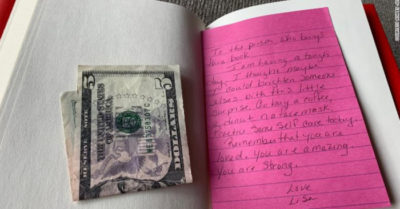 To the person who buys
this book:
I am having a tough
day. I thought maybe
I could brighten someone
else's with this little
surprise. Go buy a coffee,
a donut or a face mask.
Practice some self care today.
Remember that you are
loved. You are amazing.
You are strong.
Love
Lisa
5
DOLLARS